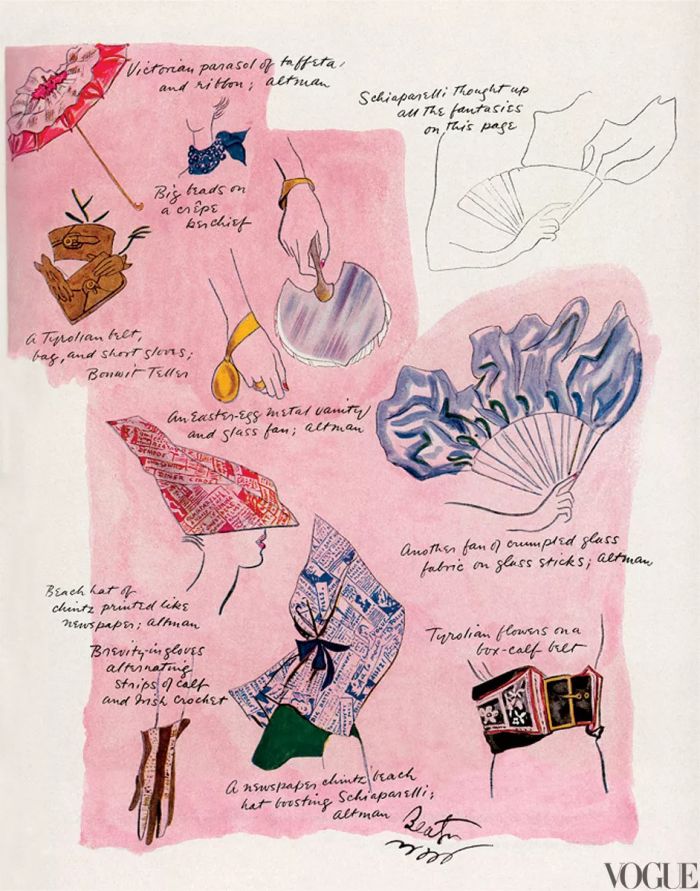 Victorian parasol of taffeta
and ribbon; Altman
Schiaparelli thought up
all the fantasies
on this page
Big beads on
a crêpe
kerchief
A Tyrolian belt,
bag, and short gloves;
Bonwit Teller
An Easter-egg metal vanity
and glass fan; Altman
Another fan of crumpled glass
fabric on glass sticks; Altman
Beach hat of
chintz printed like
newspaper; Altman
Brevity in gloves
alternating
strips of calf
and Irish crochet
Tyrolian flowers on a
box-calf belt
A newspaper chintz beach
hat boosting Schiaparelli;
Altman
Beaton
VOGUE